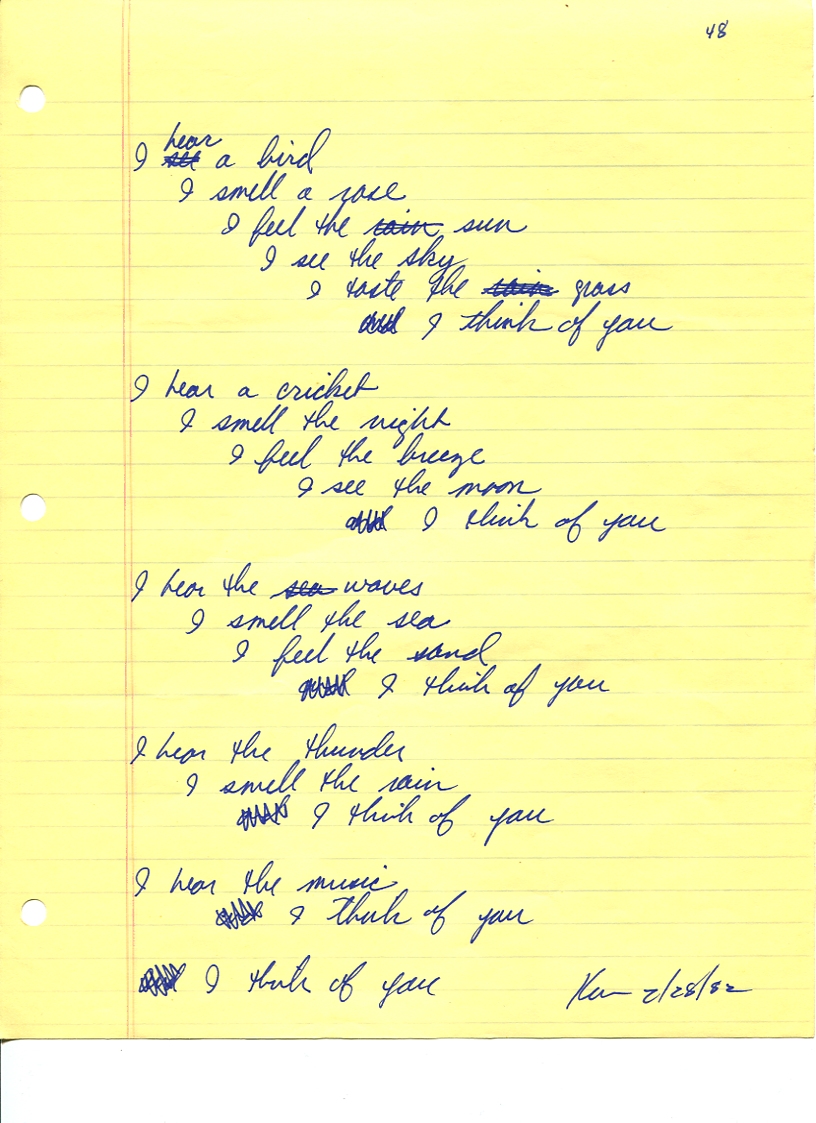 48
I hear see a bird
I smell a rose
I feel the rain sun
I see the sky
I taste the rain grass
and I think of you
I hear a cricket
I smell the night
I feel the breeze
I see the moon
I think of you
I hear the sea waves
I smell the sea
I feel the sand
I think of you
I hear the thunder
I smell the rain
I think of you
I hear the music
I think of you
I think of you
2/28/82